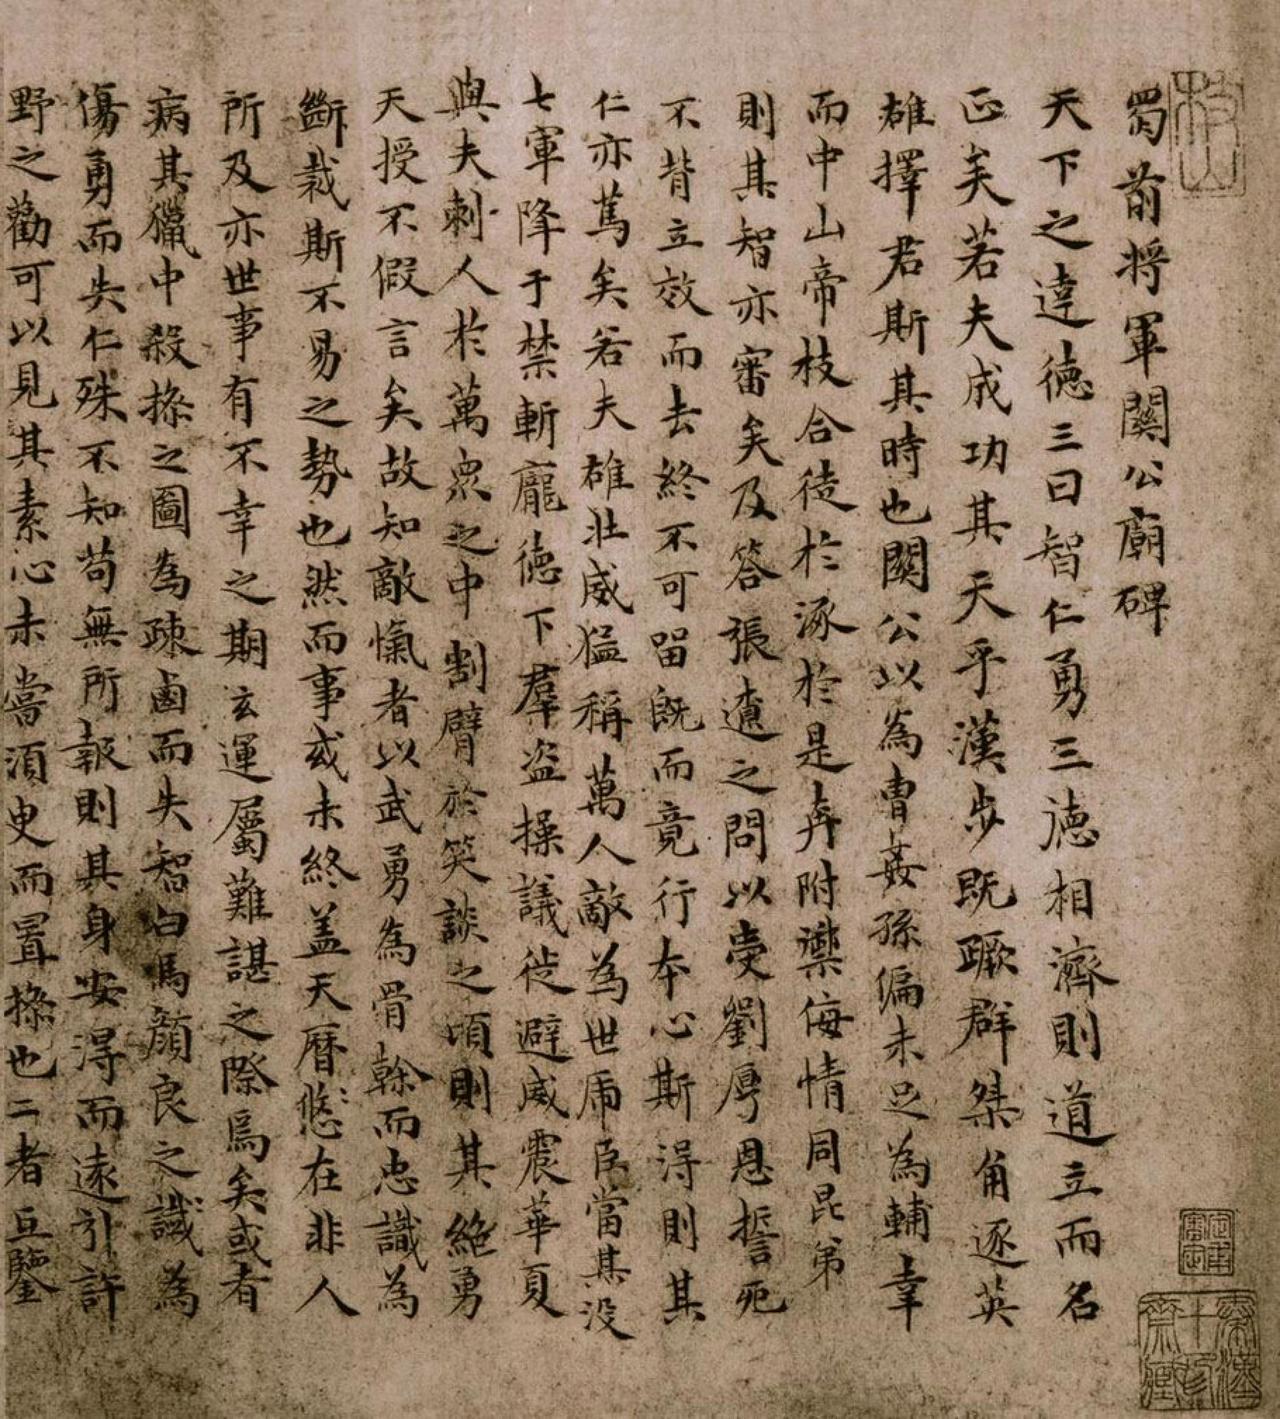 蜀前将軍關公廟碑
天下之達徳三曰智仁勇三徳相濟則道立而名
正矣若夫成功其天乎漢步既蹶群桀角逐英
雄擇君斯其時也關公以為曹姦孫偏未足為輔幸
而中山帝枝合徒於涿於是奔附禦侮情同昆弟
則其智亦審矣及答張遼之問以受劉厚恩誓死
不背立效而去終不可留既而竟行本心斯得則其
仁亦篤矣若夫雄壯威猛稱萬人敵為世虎臣當其没
七軍降于禁斬龐徳下羣盗操議徙避威震華夏
與夫刺人於萬衆之中割臂於笑談之頃則其絶勇
天授不假言矣故知敵愾者以武勇為骨幹而忠識為
斷裁斯不易之勢也然而事或未終盖天曆悠在非人
所及亦世事有不幸之期玄運屬難諶之際焉矣或者
病其獵中殺操之圖為疎鹵而失智白馬顔良之識為
傷勇而失仁殊不知苟無所報則其身安得而遠引許
野之勸可以見其素心未嘗須臾而置操也二者互鑒
枝山